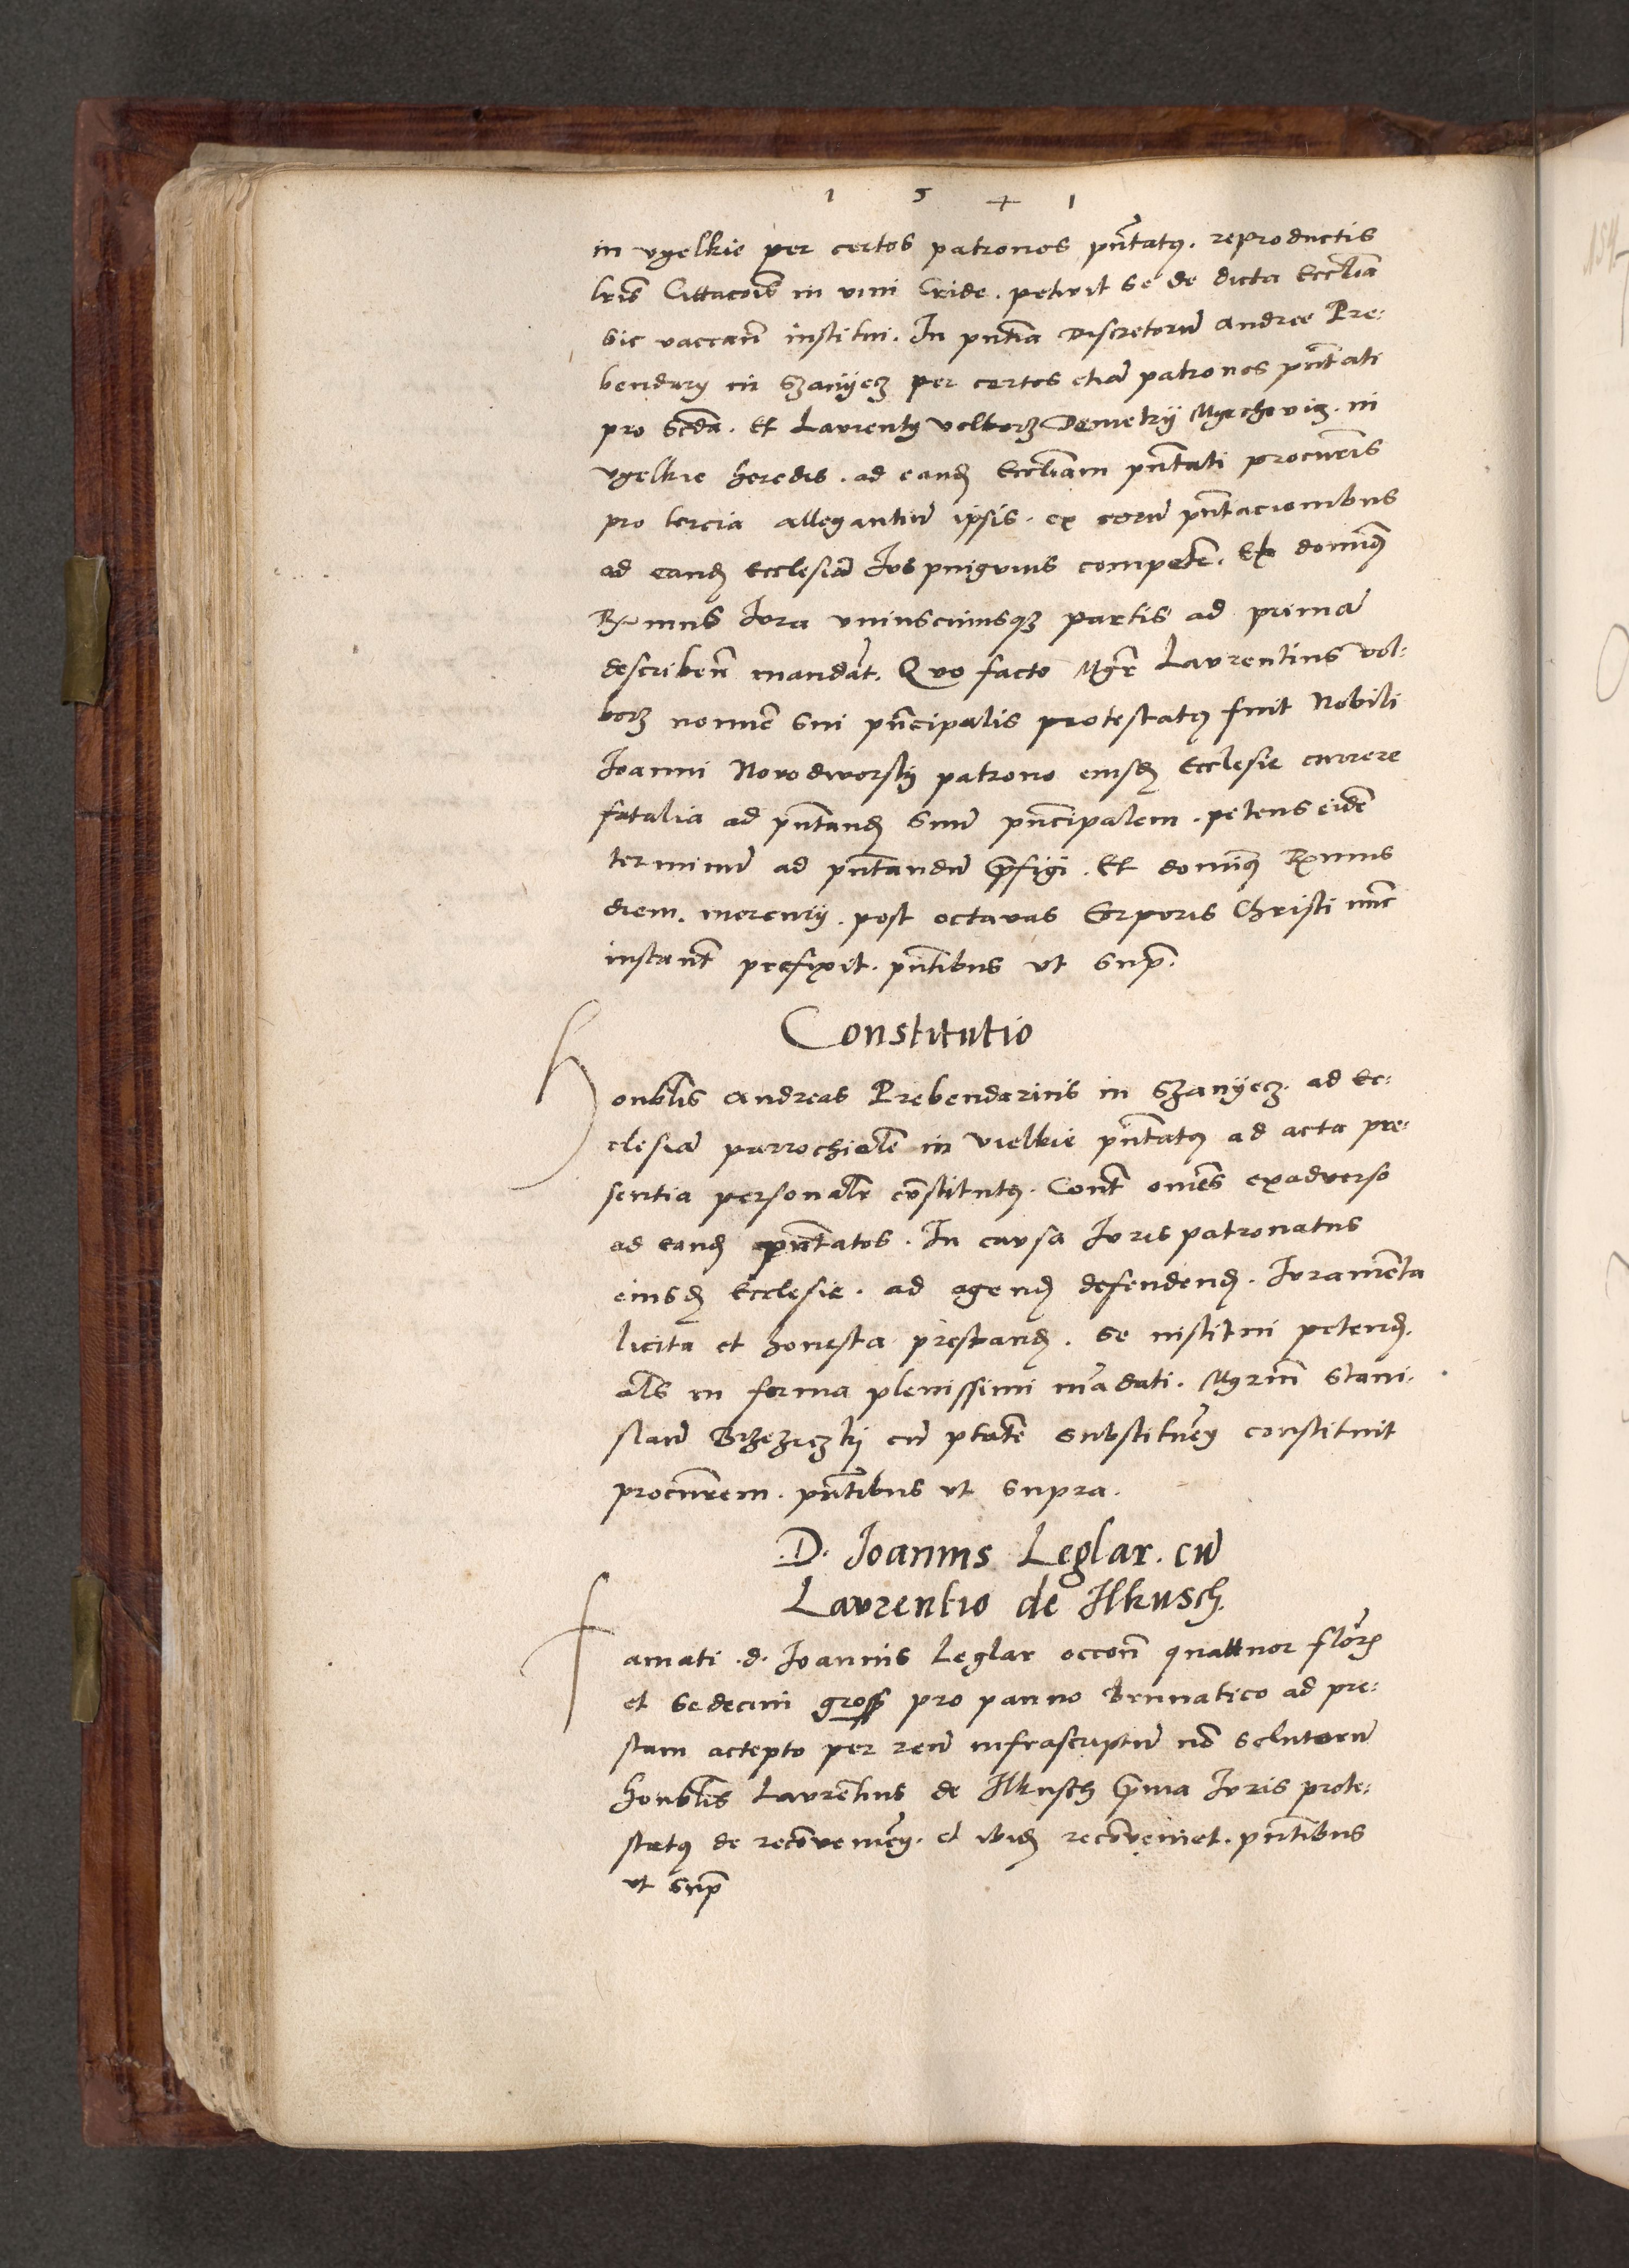 1 5 4 1
in vyelkie per certos patronos pn̄tatꝰ. reproductis
lr̄is Cittac̄ois in vim Cride. petivit se de dicta Eccl̄ia
sic vaccan̄ institui. In pn̄tia discretorū Andree Pre:
bendarij in Szanyecz per certos etiā patronos pn̄tati
pro sc̄da. Et Laurentij volborz Demetrij Myrchowicz. in
vyelkie heredis. ad eandꝫ Eccl̄iam pn̄tati procur̄is
pro tercia allegantiū ipsis. ex eorū pn̄tacionibus
ad eandꝫ Ecclesiā Ius pinguius competer̄. Et dominꝰ
R̄mus Iura uniuscuiusqꝫ partis ad primā
describen̄ mandāt. Quo facto Mgr̄ Laurentius vol:
borz nomīe sui pn̄cipalis protestatꝰ fuit Nobili
Ioanni Nowodworskij patrono eiusdꝫ Ecclesie currere
fatalia ad pn̄tandꝫ suū pn̄cipalem. petens eidē
terminū ad pn̄tandū p̄figi. Et dominꝰ R̄mus
diem. mercurij. post octavas Corporis Christi nūc
instan̄t prefixit. pn̄tibus ut sup̄.
Constitutio
Honbl̄is Andreas Prebendarius in Szanyecz. ad Ec:
clesiā parrochialē in vielkie pn̄tatꝰ ad acta pre:
sentia personalr̄ cōstitutꝰ. Cont̄ omēs exadverso
ad eandꝫ pn̄tatos. In causa Iuris patronatus
eiusdꝫ Ecclesie. ad agendꝫ defendendꝫ. Iuramēta
licita et honesta prestandꝫ. se institui petendꝫ.
al̄s in forma plenissimi mādati. Mgr̄m Stani:
slaū Brzeziczkij cū ptātē substituēdi constituit
procur̄em. pn̄tibus ut supra.
.D. Ioannis Leglar. cū
Laurentio de Ilkusch.
Famati .d. Ioannis Leglar occon̄ quattuor flor̄
et sedecim gross pro panno Brunatico ad pre:
stam accepto per reū infrascriptū nō solutorū
Honbl̄is Laurētius de Ilkusch p̄ma Iuris prote:
statꝰ de recōveniēdo. et ibidꝫ recōveniet. pn̄tibus
ut sup̄